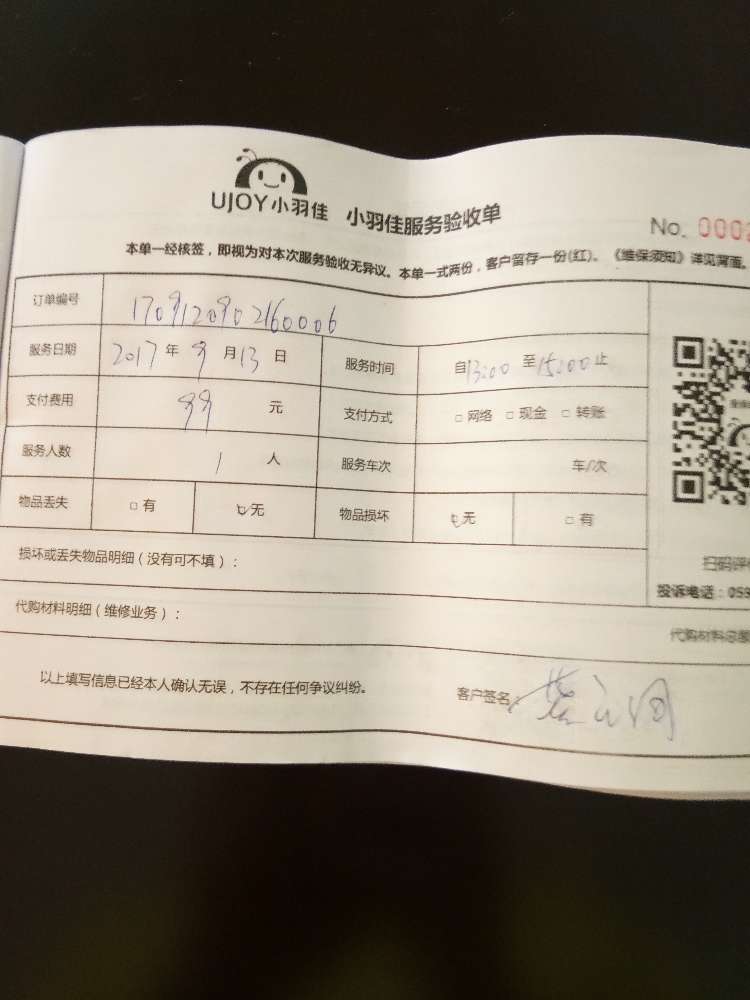 UJOY小羽佳 小羽佳服务验收单
No. 0002
本单一经核签，即视为对本次服务验收无异议。本单一式两份，客户留存一份(红)。《维保须知》详见背面。
订单编号 1709120902160006
服务日期 2017 年 9 月 13 日 服务时间 自13:00 至15:00止
支付费用 99 元 支付方式 □ 网络 □ 现金 □ 转账
服务人数 1 人 服务车次 车/次
物品丢失 □ 有 无 物品损坏 无 □ 有
损坏或丢失物品明细（没有可不填）：
扫码评
投诉电话：059
代购材料明细（维修业务）：
代购材料总
以上填写信息已经本人确认无误，不存在任何争议纠纷。 客户签名：